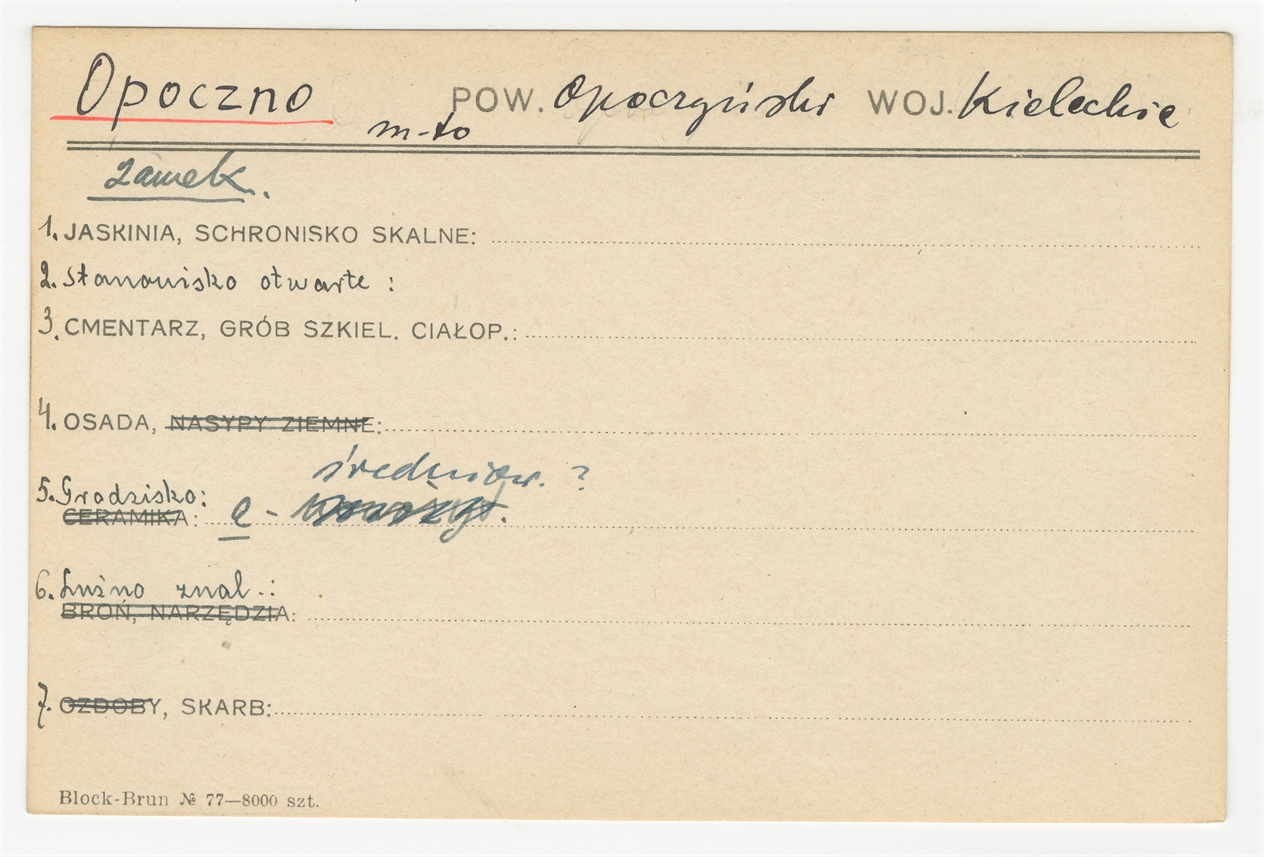 Opoczno POW. Opoczyński WOJ. Kieleckie
m-to
zamek.
1. JASKINIA, SCHRONISKO SKALNE:
2. Stanowisko otwarte :
3. CMENTARZ, GRÓB SZKIEL. CIAŁOP.:
4. OSADA, NASYPY ZIEMNE:
średniow. ?
5. Grodzisko:
CERAMIKA: e -
6. Luźno znal.:
BROŃ, NARZĘDZIA:
7. OZDOBY, SKARB:
Block-Brun № 77—8000 szt.